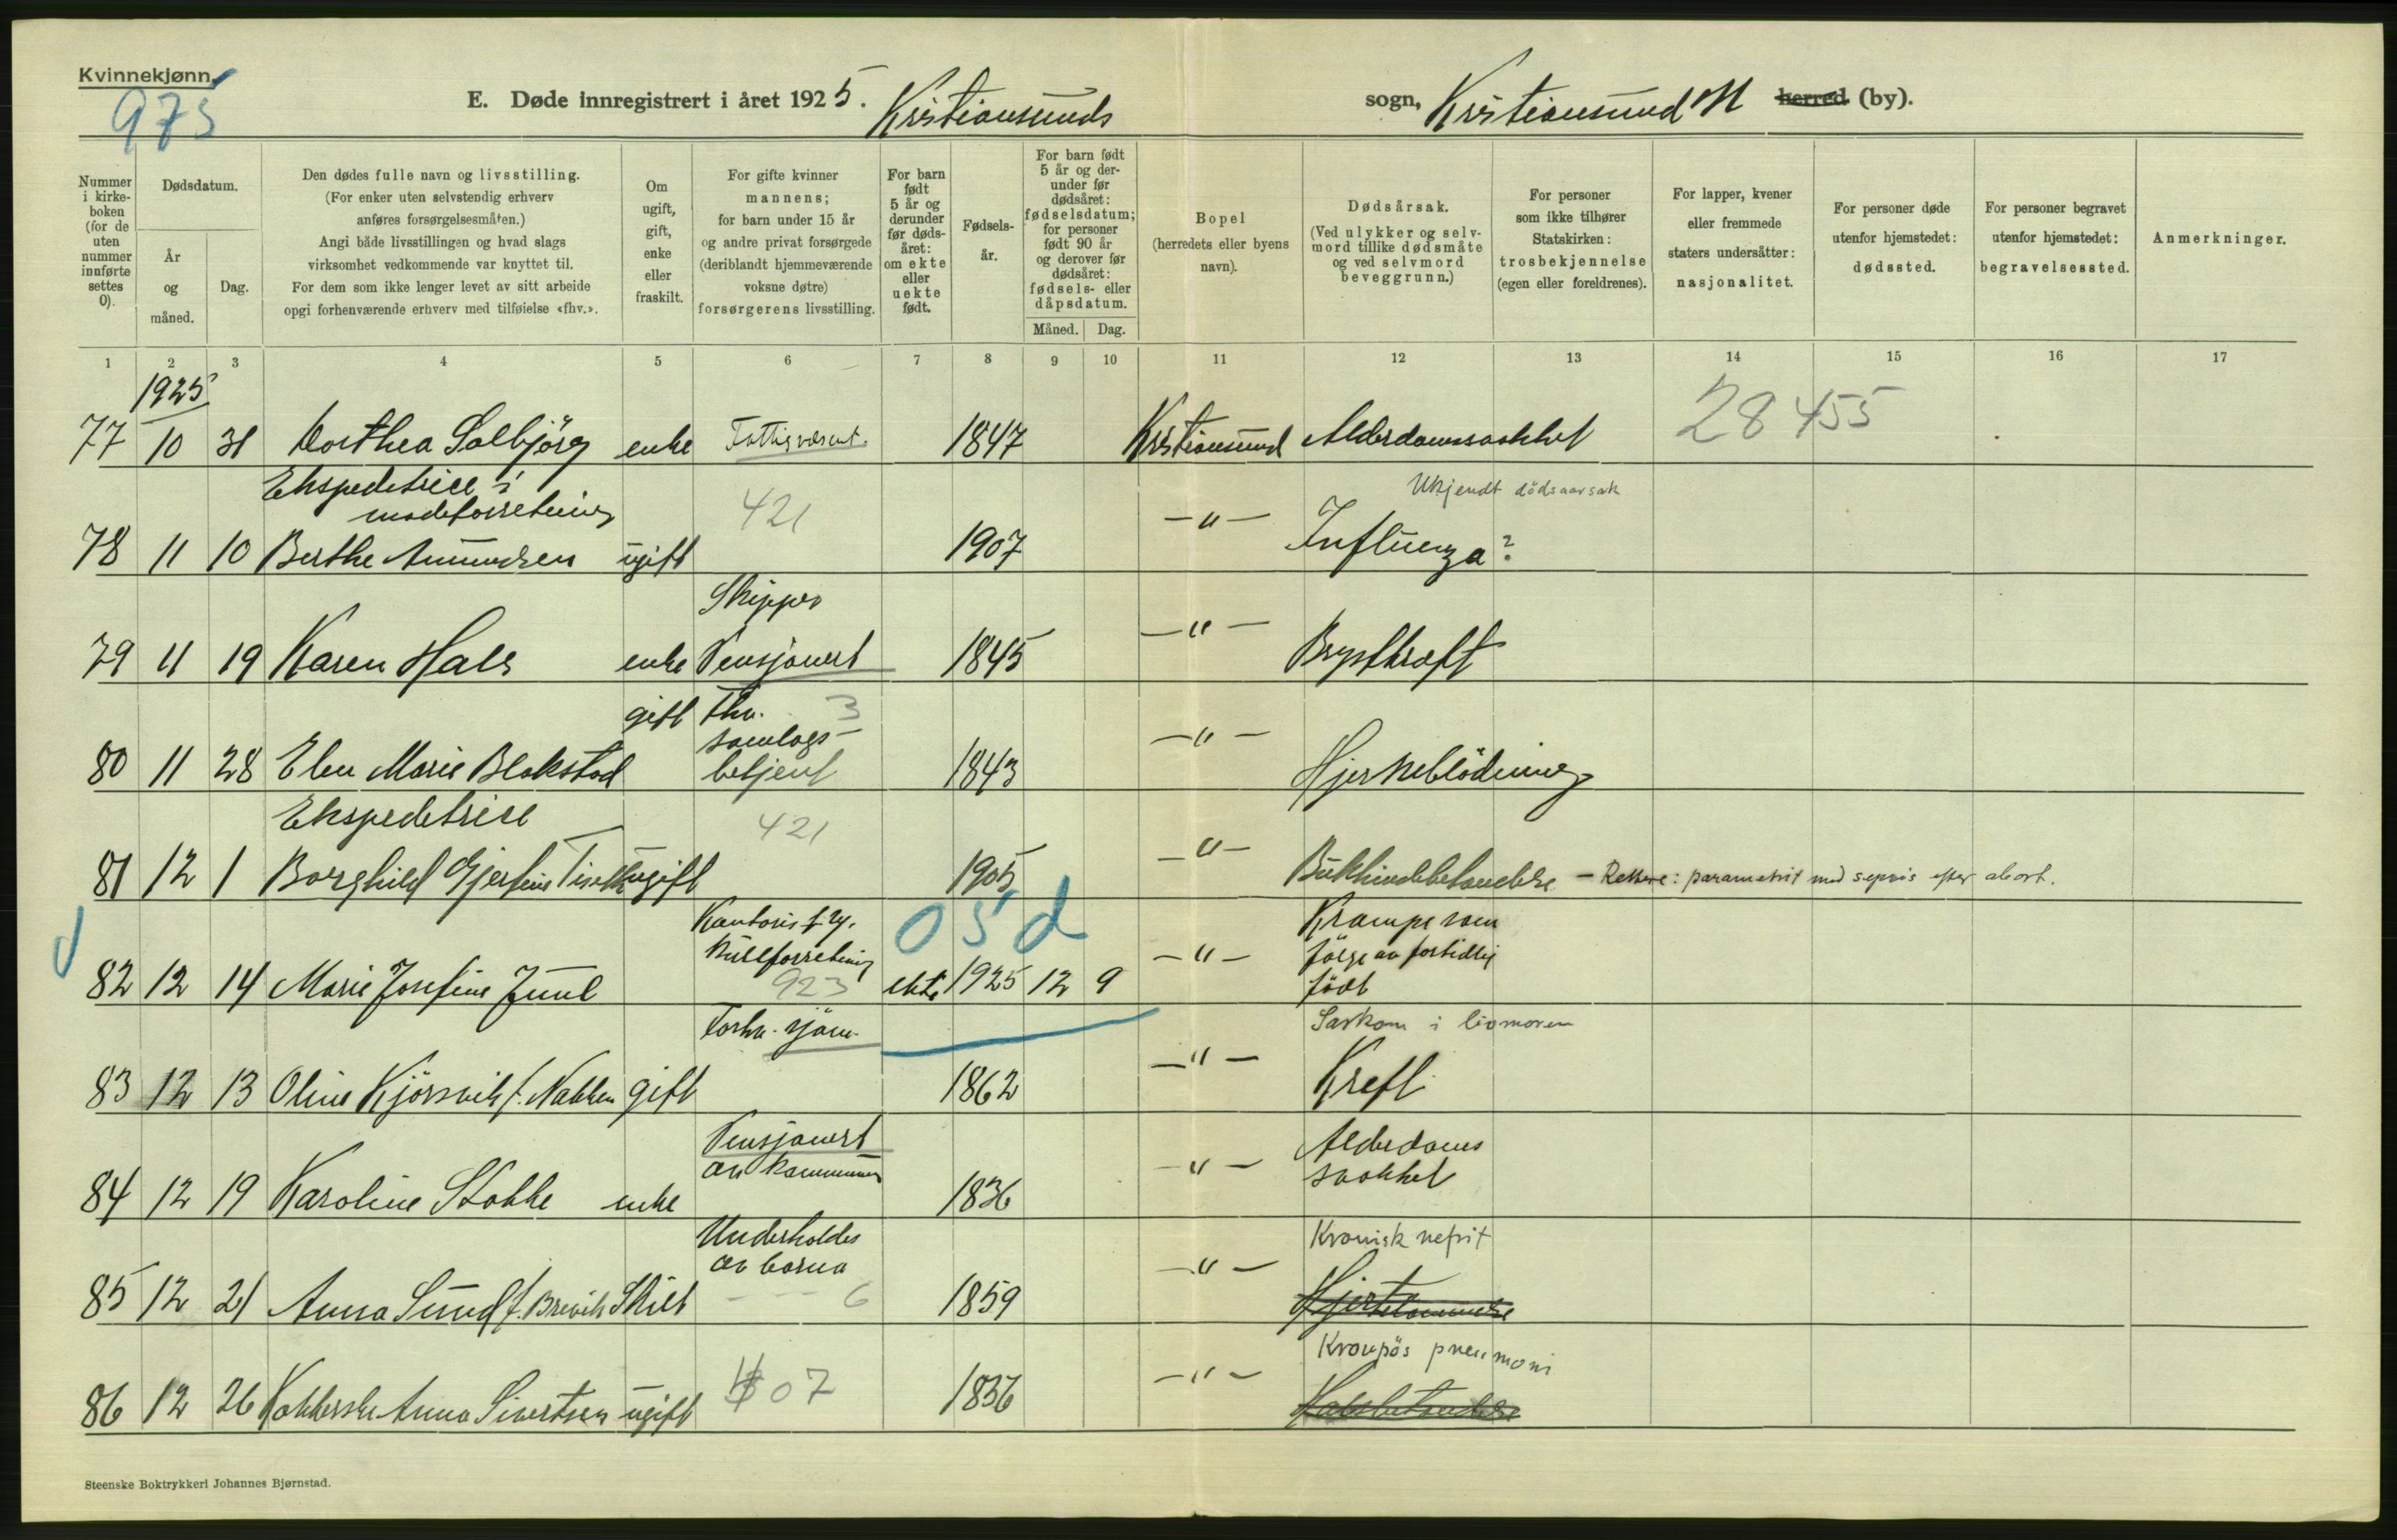 Kvinnekjønn.
975
E. Døde innregistrert i året 1925. Kristiansunds sogn, Kristiansund N herred (by).
Nummer i kirke- boken (for de uten nummer innførte settes 0).
Dødsdatum.
År og måned.
Dag.
Den dødes fulle navn og livsstilling.
(For enker uten selvstendig erhverv
anføres forsørgelsesmåten.)
Angi både livsstillingen og hvad slags
virksomhet vedkommende var knyttet til.
For dem som ikke lenger levet av sitt arbeide
opgi forhenværende erhverv med tilføielse «fhv.».
Om ugift, gift, enke eller fraskilt.
For gifte kvinner
mannens;
for barn under 15 år
og andre privat forsørgede
(deriblandt hjemmeværende
voksne døtre)
forsørgerens livsstilling.
For barn født 5 år og derunder før døds- året: om ekte eller uekte født.
Fødsels- år.
For barn født
5 år og der-
under før
dødsåret:
fødselsdatum;
for personer
født 90 år
og derover før
dødsåret:
fødsels- eller
dåpsdatum.
Måned. Dag.
Bopel
(herredets eller byens
navn).
Dødsårsak.
(Ved ulykker og selv-
mord tillike dødsmåte
og ved selvmord
beveggrunn.)
For personer
som ikke tilhører
Statskirken:
trosbekjennelse
(egen eller foreldrenes).
For lapper, kvener
eller fremmede
staters undersåtter:
nasjonalitet.
For personer døde
utenfor hjemstedet:
dødssted.
For personer begravet
utenfor hjemstedet:
begravelsessted.
Anmerkninger.
1 2 3 4 5 6 7 8 9 10 11 12 13 14 15 16 17
1925
77 10 31 Dorthea Solbjörg enke Fattigvæsent. 1847 Kristiansund Alderdomssvakhet 28455
Ekspeditrice i
modeforretning
421
Ukjendt dödsaarsak
78 11 10 Berthe Amundsen ugift 1907 —"— Influenza?
Skipper
79 11 19 Karen Hals enke Pensjonert 1845 —"— Brystkræft
gift Fhv. 3
samlags-
80 11 28 Elen Marie Blakstad betjent 1843 —"— Hjerneblödning
Ekspeditrise
421
81 12 1 Borghild Gjertine ugift 1905 —"— Bukhindebetændelse — Rettere: parametrit med sepsis efter abort.
Kontorist
kullforretning
05 d
Krampe som
følge av fortidlig
82 12 14 Marie Josefine Juul 923 ekte 1925 12 9 —"— födt
Forhv. sjöm.
Sarkom i livmoren
83 12 13 Oline Kjörsvik f. Nakken gift 1862 —"— Kreft
Pensjonert
av kommunen
Alderdoms
svakhet
84 12 19 Karoline Stokke enke 1836 —"—
Underholdes
av borna
Kronisk nefrit
85 12 21 Anna Sund f. Brevik Skilt 6 1859 —"— Hjertelammelse
Kroupös pneumoni
86 12 26 Kokkerske Anna Sivertsen ugift 07 1836 —"— Halsbetændelse
Steenske Boktrykkeri Johannes Bjørnstad.